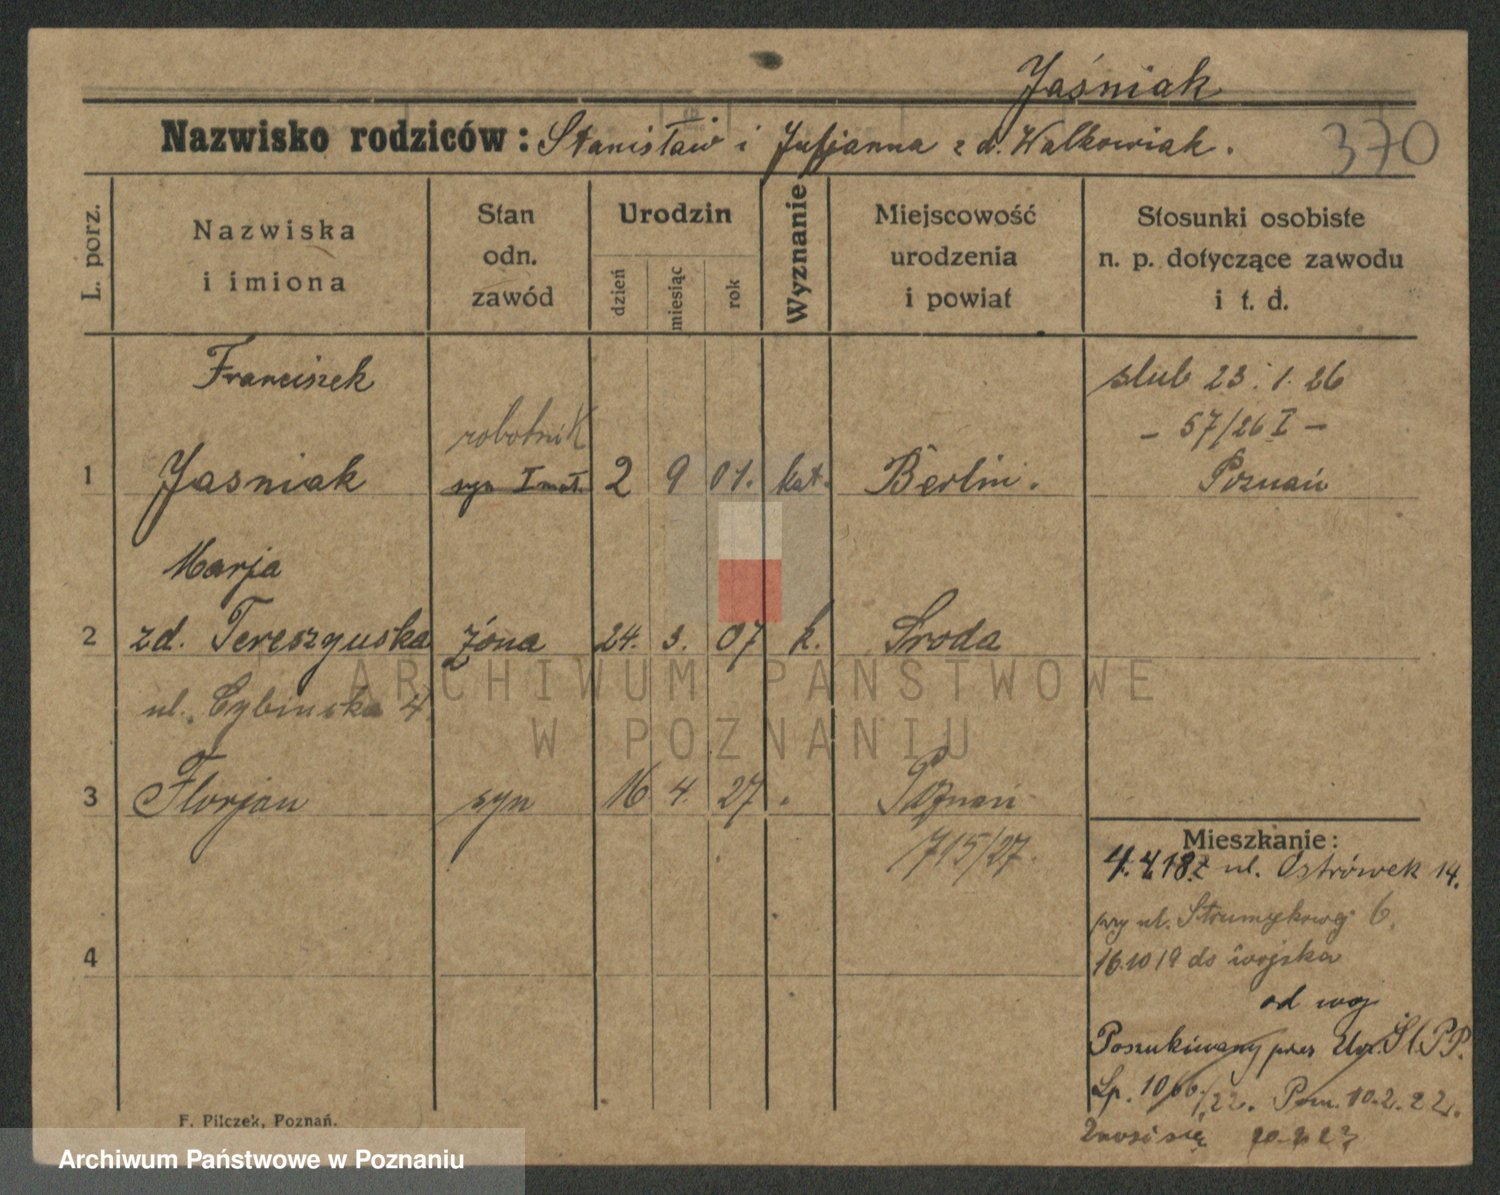 Jaśniak
Nazwisko rodziców: Stanisław i Juljanna z d. Walkowiak.
370
L. porz.
Nazwiska
i imiona
Stan
odn.
zawód
Urodzin
dzień
miesiąc
rok
Wyznanie
Miejscowość
urodzenia
i powiat
Stosunki osobiste
n. p. dotyczące zawodu
i t. d.
Franciszek
robotnik
1 Jasniak syn 2 9 01. kat. Berlin.
slub 23.1.26
- 57/26 I -
Poznań
Marja
2 zd. Tereszyuska żona 24. 3. 07 k. Sroda
ul. Cybinska 4
3 Florjan syn 16 4. 27 Poznań
1715/27.
4
Mieszkanie:
ul. Ostrówek 14.
przy ul. Strumykowej 6.
16.10 19 do wojska
od woj
Poszukiwany przez Urz. Śl. P.P.
Lp. 1060/22. Pom. 10.2.22.
Znosi się
F. Pilczek, Poznań.
ARCHIWUM PAŃSTWOWE
W POZNANIU
Archiwum Państwowe w Poznaniu